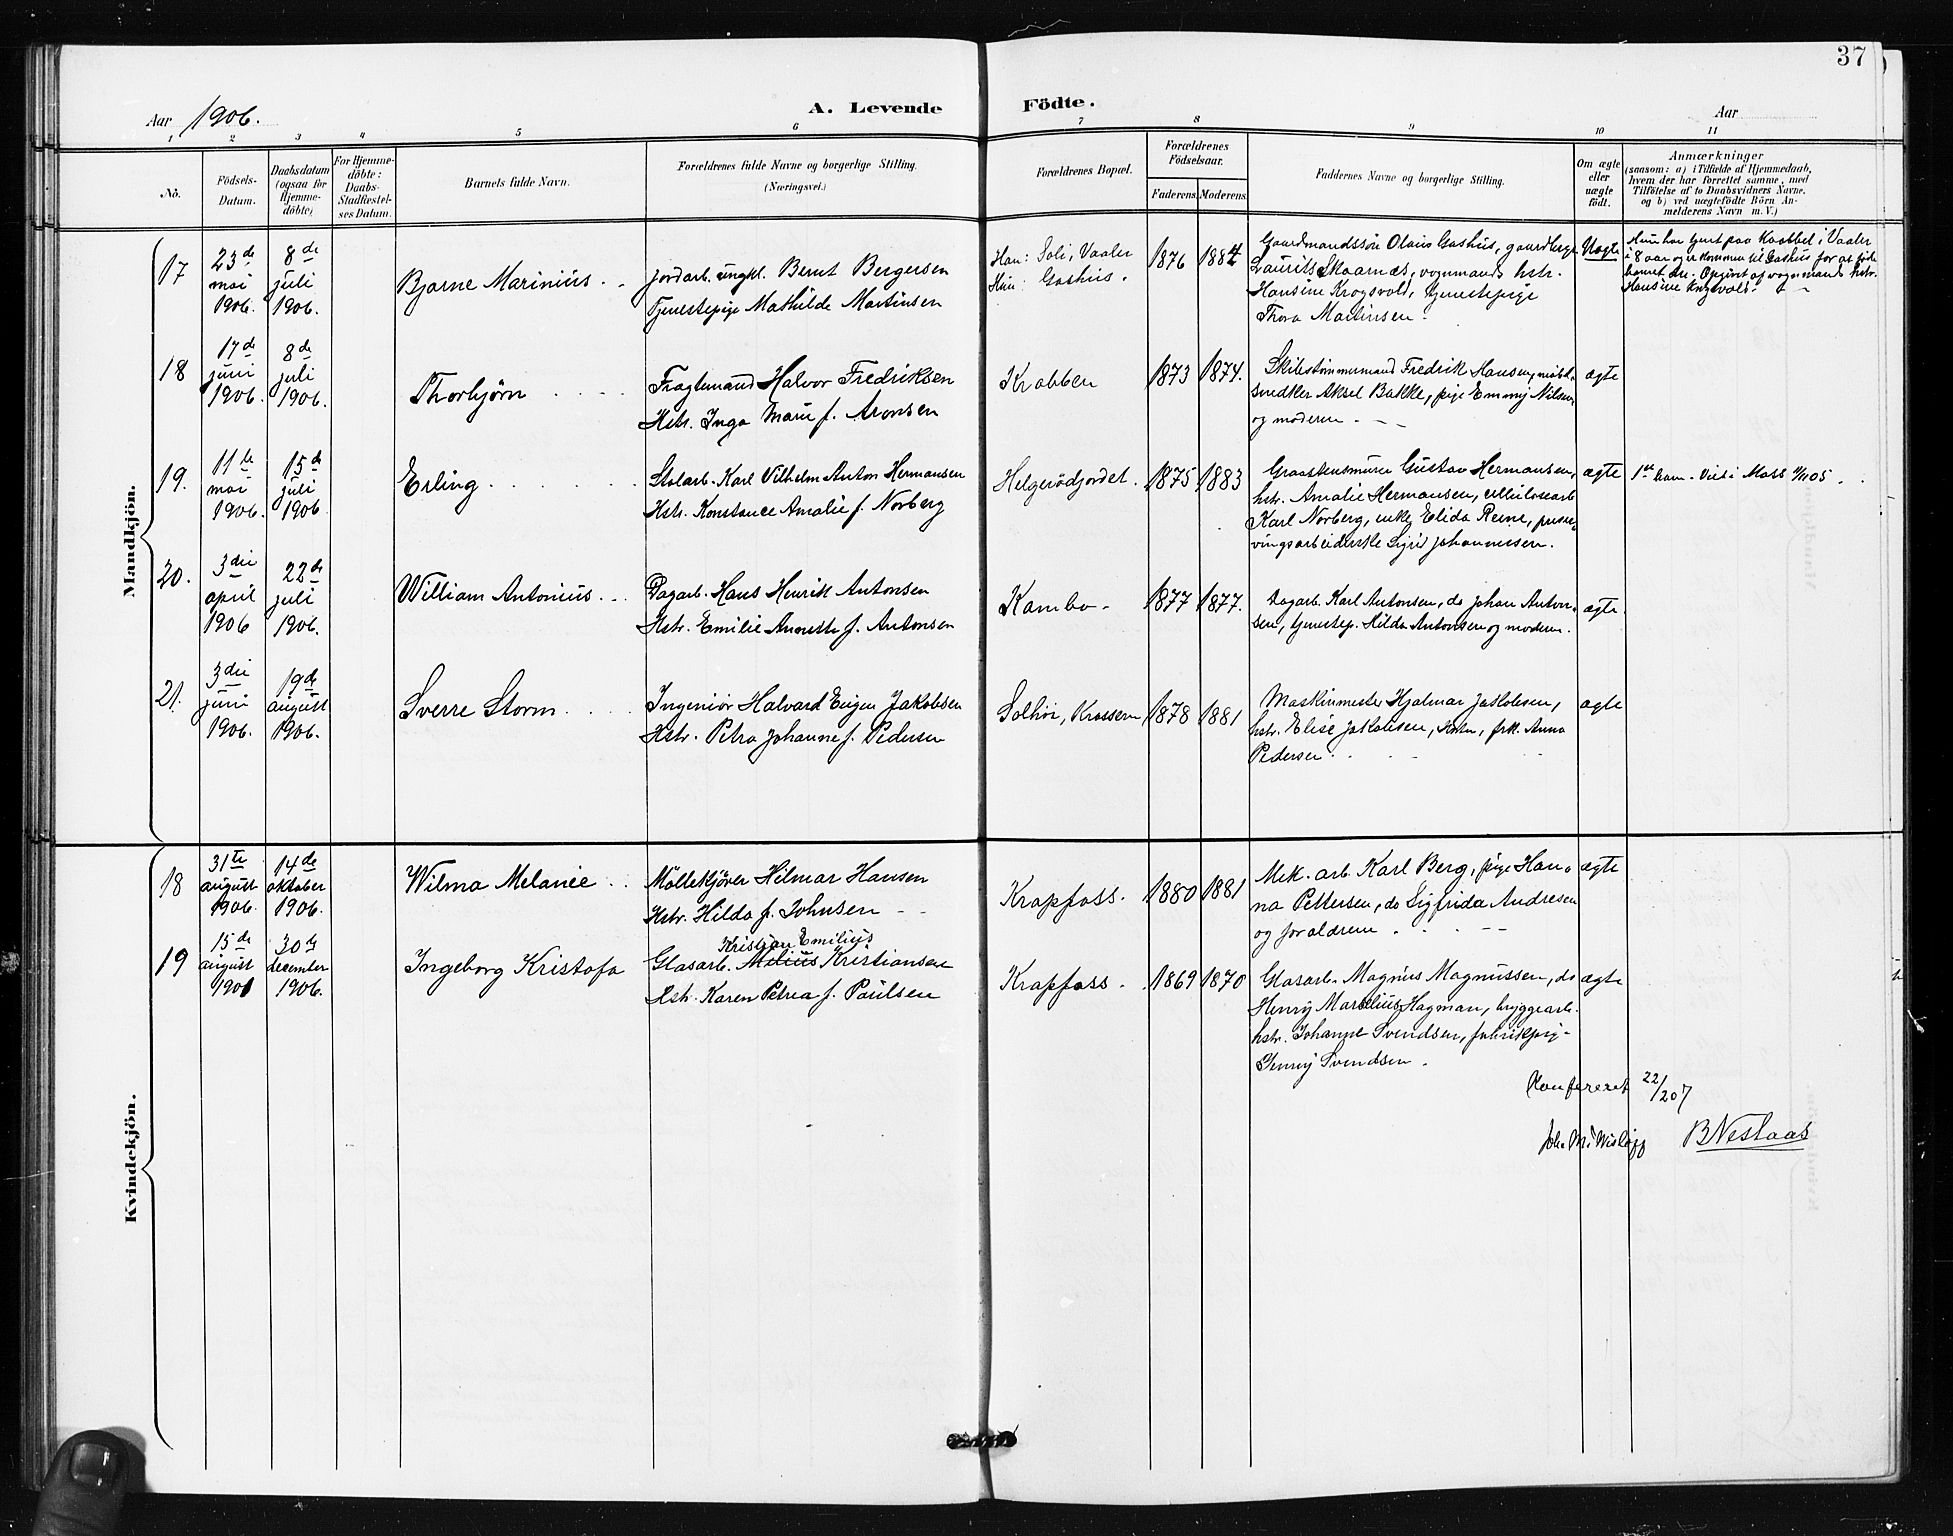 37
Aar 1906.
A. Levende Födte.
Aar
1 2 3 4 5 6 7 8 9 10 11
No.
Födsels-Datum.
Daabsdatum (ogsaa for Hjemme-döbte)
For Hjemme-döbte: Daabs-Stadfæstel-ses Datum.
Barnets fulde Navn.
Forældrenes fulde Navne og borgerlige Stilling.
(Næringsvei.)
Forældrenes Bopæl.
Forældrenes Födselsaar.
Faderens Moderens
Faddernes Navne og borgerlige Stilling.
Om ægte eller uægte födt.
Anmærkninger
(saasom: a) i Tilfælde af Hjemmedaab,
hvem der har forrettet samme, med
Tilföielse af to Daabsvidners Navne,
og b) ved uægtefödte Börn An-
melderens Navn m. V.)
Mandkjön.
17
23de mai 1906.
8de juli 1906.
Bjarne Marinius
Jordarb. ungkl. Bernt Bergersen
Tjenestepige Mathilde Martinsen
Han: Soli, Vaaler
Hun: Gashus.
1876 1884
Gaardmandssön Olaus Gashus, gaardbruger
Laurits Skaarnæs, vognmands hstr.
Hansine Krogsvold, tjenestepige
Thora Martinsen.
Uægte
Hun har tjent paa Kaabbel i Vaaler
i 8 aar og er kommen til Gashus for at föde
barnet der. Opgivet af vognmands hstr.
Hansine Krogsvold.
18
17de juni 1906.
8de juli 1906.
Thorbjörn
Fragtemand Halvor Fredriksen
Hstr. Inga Marie f. Aronsen
Krabben
1873 1874.
Skibstömmermand Fredrik Hansen, möbel-
snedker Aksel Bakke, pige Emmy Nilsen
og moderen
ægte
19.
11te mai 1906.
15de juli 1906
Erling
Stolarb. Karl Vilhelm Anton Hermansen
Hstr. Konstance Amalie f. Norberg
Helgerödjordet.
1875 1883
Graastensmurer Gustav Hermansen,
hstr. Amalie Hermansen, cellulosearb
Karl Norberg, enke Elida Reine, preser-
vingsarbeiderske Sigrid Johannessen.
ægte
1ste barn - Viet i Moss
20.
3die april 1906
22de juli 1906.
William Antonius
Dagarb. Hans Henrik Antonsen
Hstr. Emilie Annette f. Antonsen
Kambo
1877 1877.
Dagarb. Karl Antonsen, do Johan Anton-
sen, tjenestep. Hilda Antonsen og moderen.
ægte.
21.
3die juni 1906.
19de august 1906.
Sverre Storm
Ingeniör Halvard Eugen Jakobsen
Hstr. Petra Johanne f. Pedersen
Solhöi, Krossern
1878 1881
Maskinmester Hjalmar Jakobsen,
hstr. Elise Jakobsen, frk. Anna
Pedersen
ægte
Kvindekjön.
18
31te august 1906.
14de oktober 1906.
Wilma Melanie
Möllekjörer Hilmar Hansen
Hstr. Hilda f. Johnsen
Krapfoss.
1880 1881
Mek. arb. Karl Berg, pige Han-
na Pettersen, do Sigfrida Andresen
og forældrene
ægte
19
15de august 1901
30te december 1906.
Ingeborg Kristofa
Kristian Emilius
Glasarb. Milius Kristiansen
Hstr. Karen Petrea f. Paulsen
Krapfoss
1869 1870
Glasarb. Magnus Magnussen, do
Henry Marselius Hagman, bryggearb.
hstr. Johanne Svendsen, fabrikpige
Jenny Svendsen.
ægte
Konfereret 22/207
Joh. M. Wisløff BNeslaas